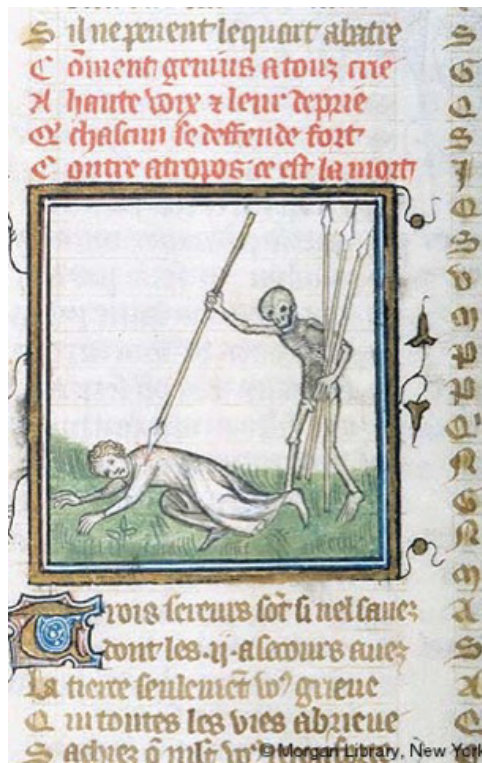 S il ne peuent lequort abatre
C õment genius a touz crie
A haute voix ⁊ leur deprie
Q̃ chascun se deffende fort
C ontre atropos ce est la mort
Trois sereurs sõt si nel sauez
dont les .ij. a secours auez
La tierce seulemẽt vo⁹ grieue
Q ui toutes les vies abrieue
S achiez q̃
© Morgan Library, New York